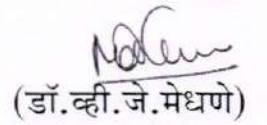 (डॉ.व्ही.जे.मेधणे)